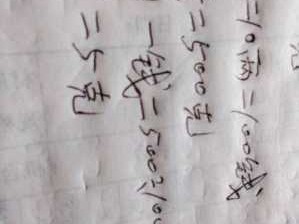 =10两=100钱
=500克
一钱=500÷100
=5克